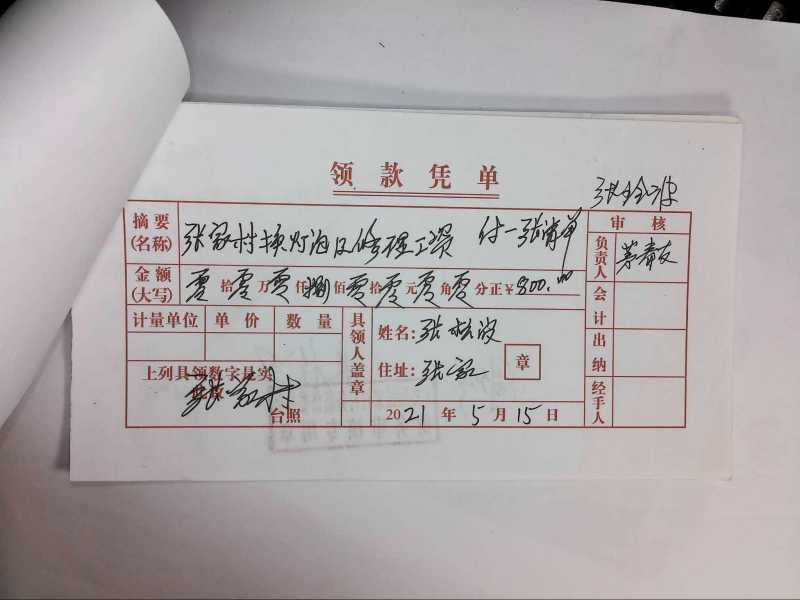 领款凭单
摘要(名称) 张家村换灯泡及修理工资 付一张清单
审核
金额(大写) 零拾零万零仟捌佰零拾零元零角零分正¥800.00
负责人
会计
出纳
经手人
计量单位 单价 数量
具领人盖章
姓名:张松波
住址:张家
章
上列具领数字是实
张家村
台照
2021年5月15日